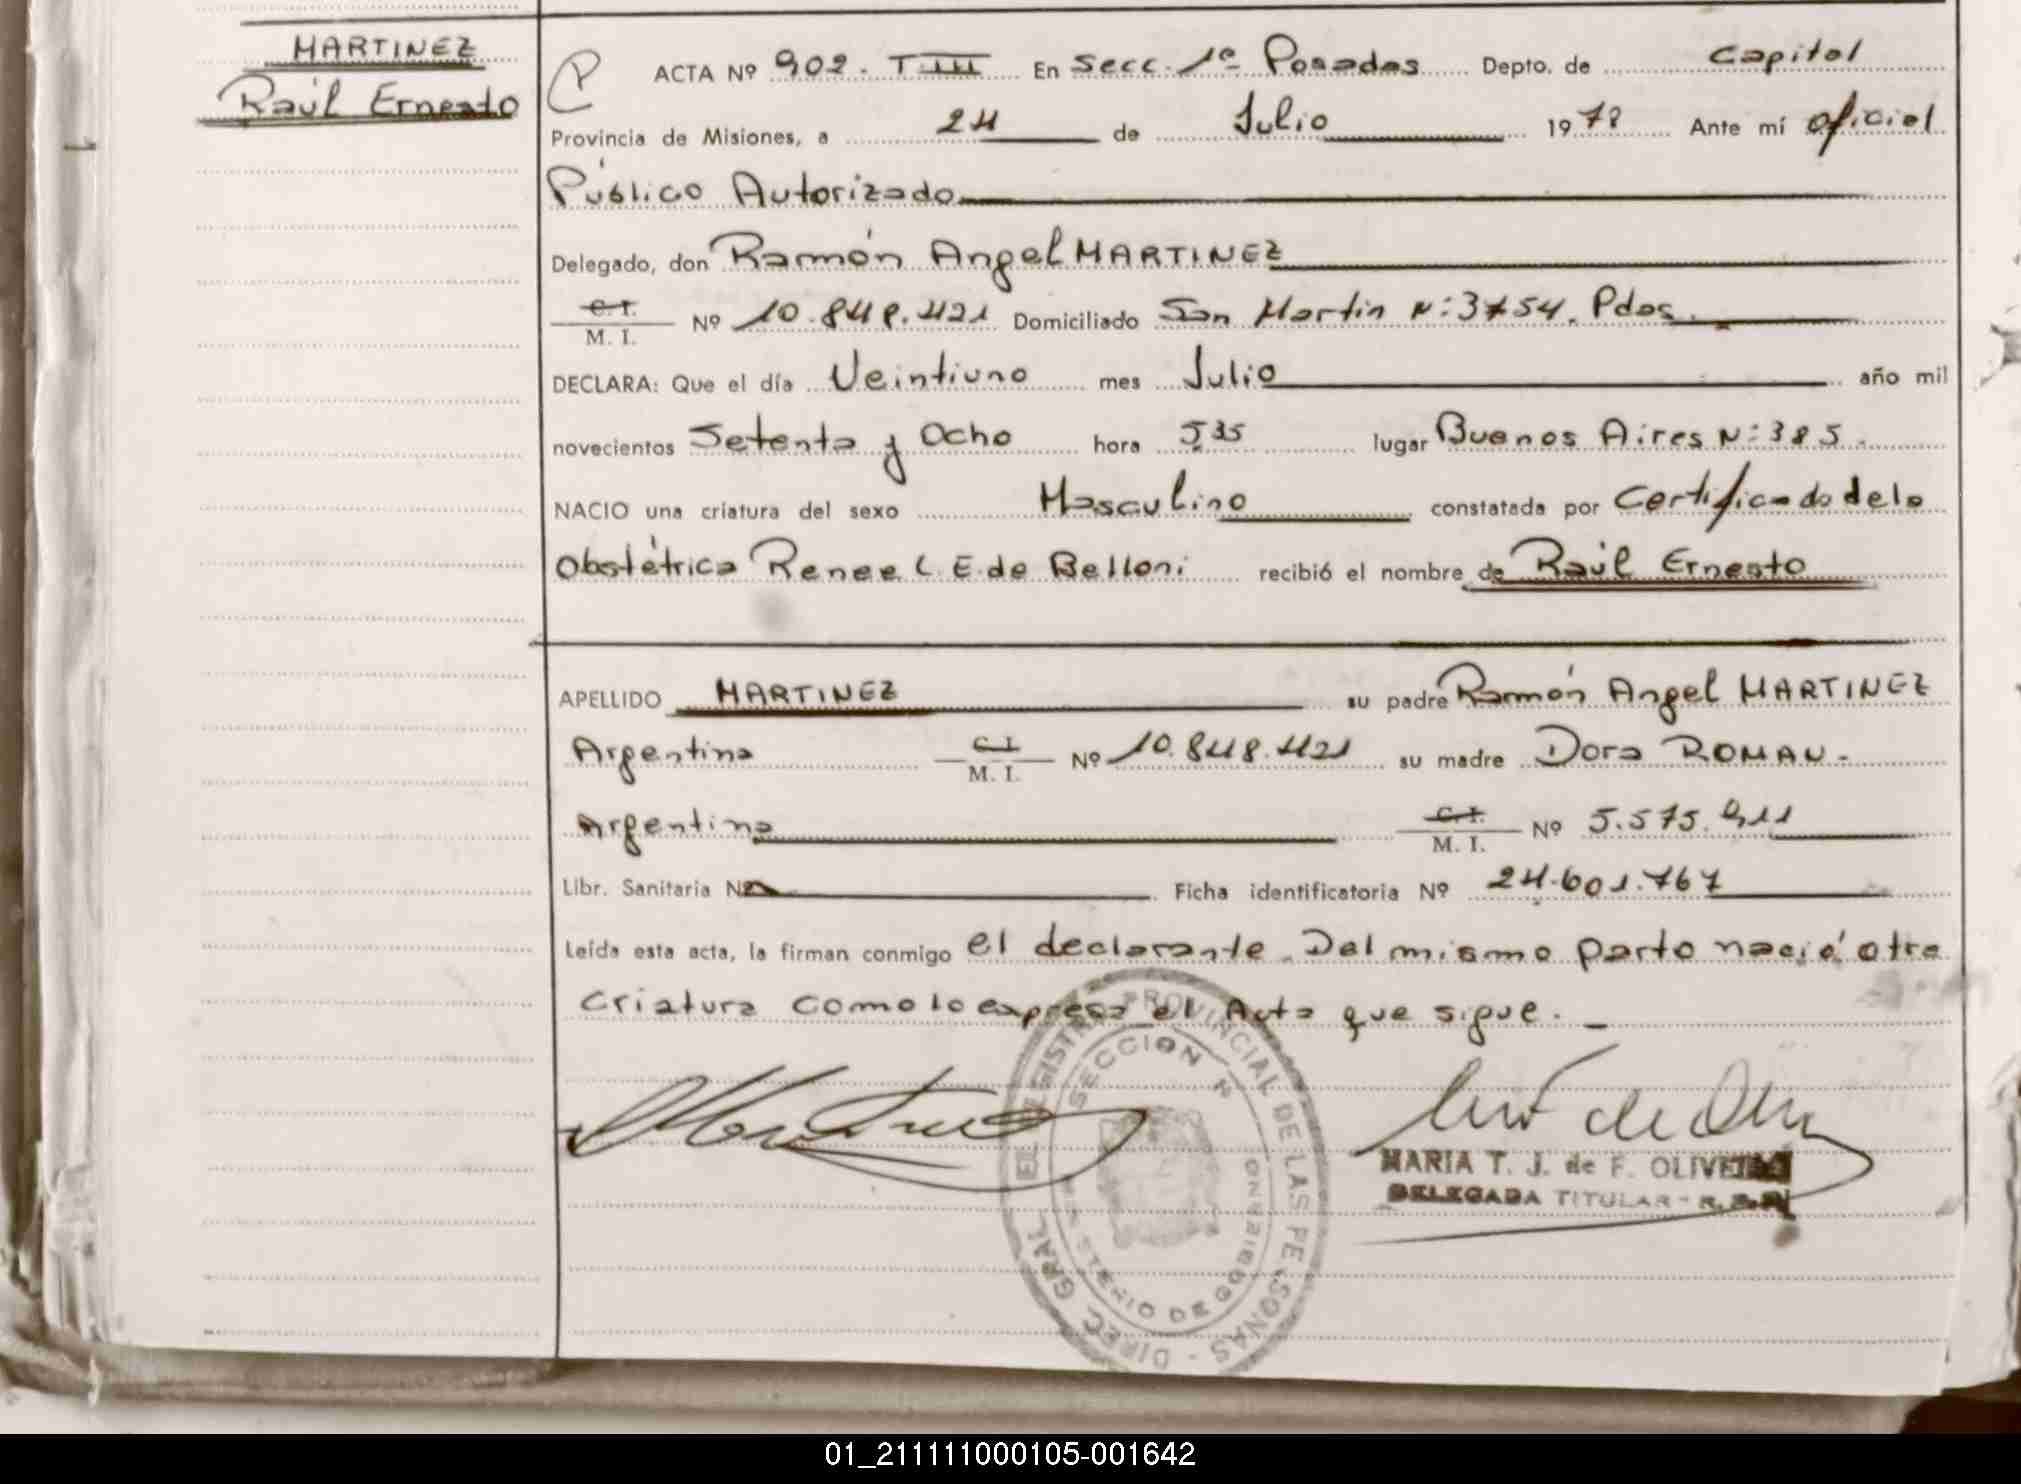 MARTINEZ
Raúl Ernesto
ACTA Nº 902. T III En Secc. 1ª Posadas Depto. de Capital
Provincia de Misiones, a 24 de Julio 1978 Ante mí oficial
Público Autorizado
Delegado, don Ramón Angel MARTINEZ
C.I. M. I. Nº 10.848.421 Domiciliado San Martin N: 3754. Pdas.
DECLARA: Que el día Veintiuno mes Julio año mil
novecientos Setenta y Ocho hora 5 35 lugar Buenos Aires N: 385.
NACIO una criatura del sexo Masculino constatada por Certificado de la
Obstétrica Renee L. E. de Belloni recibió el nombre de Raúl Ernesto
APELLIDO MARTINEZ su padre Ramón Angel MARTINEZ
Argentina C.I. M. I. Nº 10.848.421 su madre Dora ROMAN.
Argentina C.I. M. I. Nº 5.575.911
Libr. Sanitaria Nº Ficha identificatoria Nº 24.601.767
Leída esta acta, la firman conmigo el declarante. Del mismo parto nació otra
criatura como lo expresa el Acta que sigue.
DIREC. GRAL. DEL REGISTRO PROVINCIAL DE LAS PERSONAS
SECCION
MINISTERIO DE GOBIERNO
MARIA T. J. de F. OLIVEIRA
DELEGADA TITULAR - R.
01_211111000105-001642